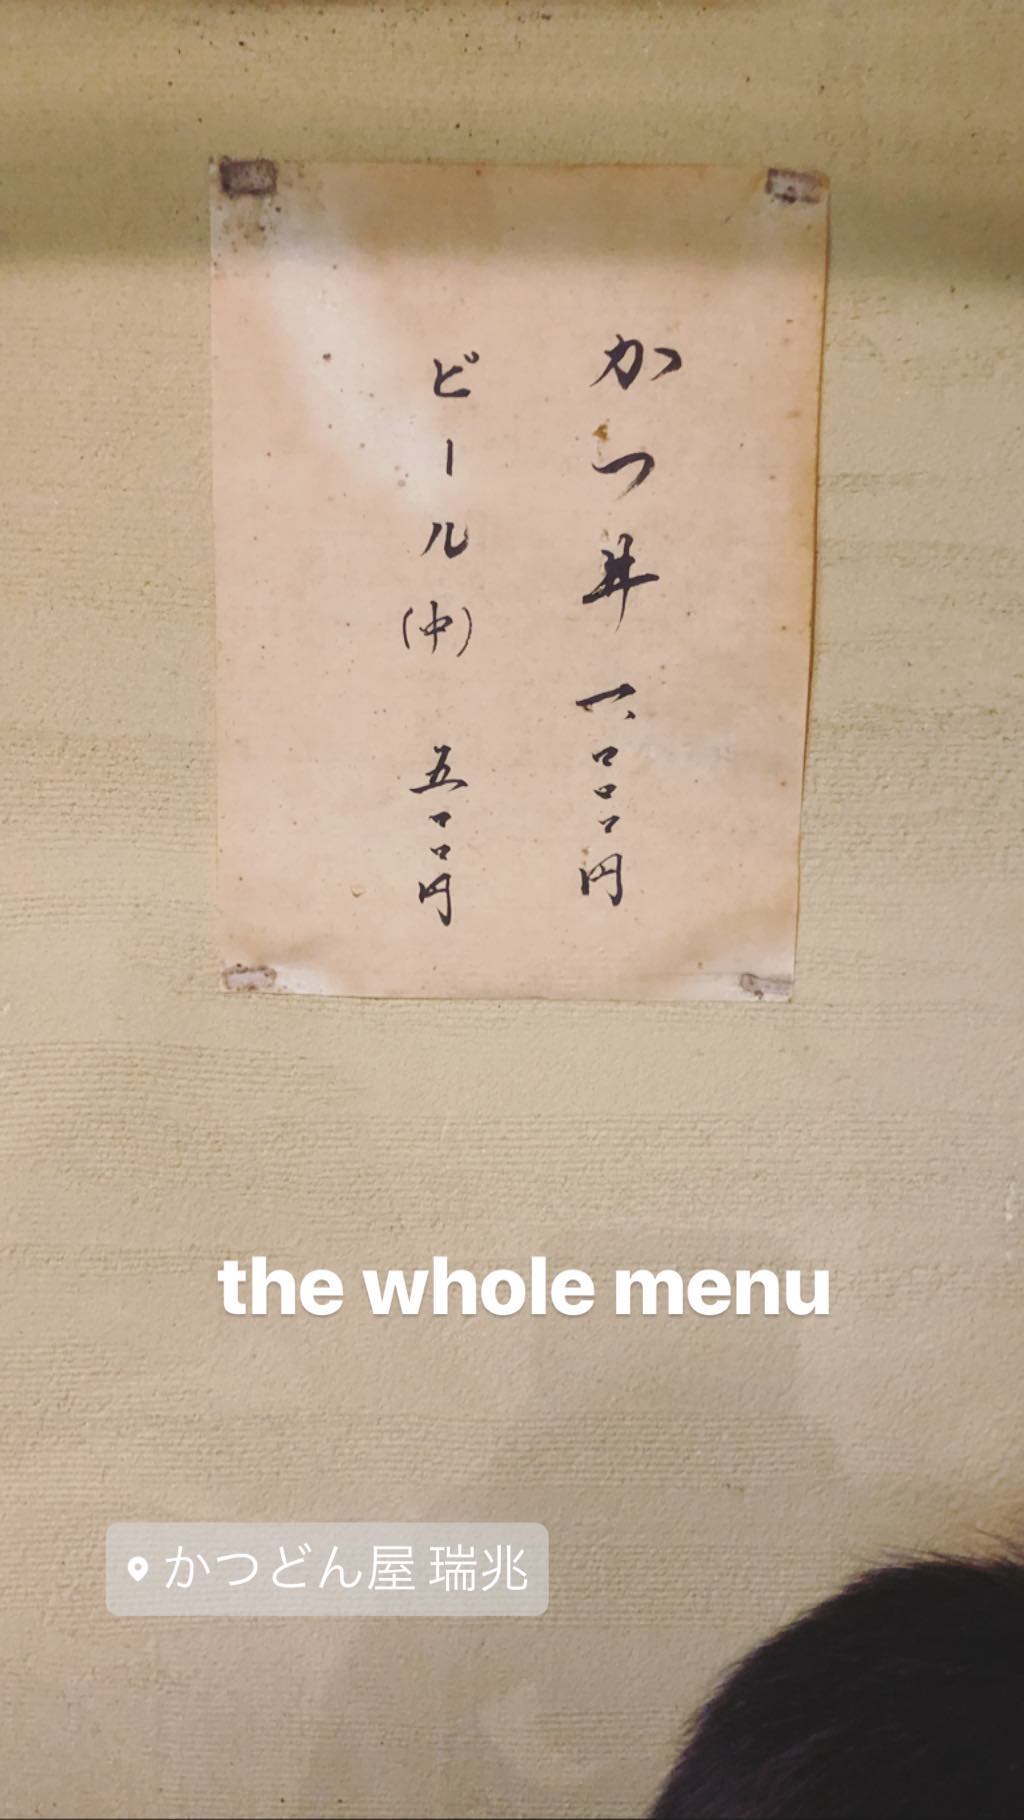 かつ丼 一、〇〇〇円
ビール(中) 五〇〇円
the whole menu
かつどん屋 瑞兆